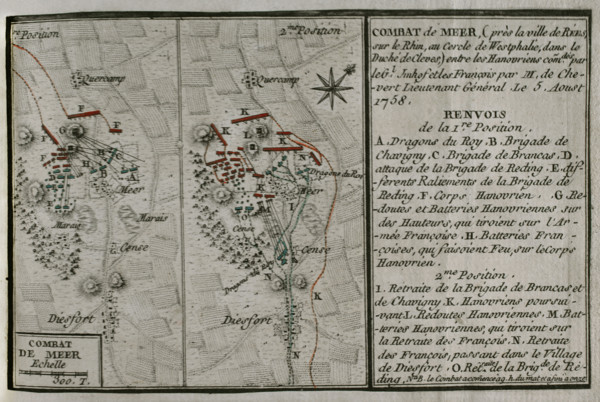 re Position
F
F
Quercamp
G
F
H
C
B
A
D
E
Meer
Marais
Marais
Cense
Diesfort
COMBAT
DE MEER
Echelle
300. T.
2.me Position
Quercamp
K
K
L
K
Dragons du Roy
Meer
I
Cense
Cense
M
N
K
Dragons du Roy
Diesfort
N
COMBAT de MEER, (près la ville de REES,
sur le Rhin, au Cercle de Westphalie, dans le
Duché de Cleves,) entre les Hanovriens com.dés par
le G.l Imhof et les François par M. de Che-
vert Lieutenant Général. Le 5. Aoust
1758.
RENVOIS
de la 1.re Position.
A. Dragons du Roy. B. Brigade de
Chavigny. C. Brigade de Brancas. D.
attaque de la Brigade de Reding. E. dif-
ferents Raliements de la Brigade de
Reding. F. Corps Hanovrien. G. Re-
doutes et Batteries Hanovriennes sur
des Hauteurs, qui tiroient sur l'Ar-
mée Françoise. H. Batteries Fran-
çoises, qui faisoient Feu, sur le Corps
Hanovrien.
2.me Position.
I. Retraite de la Brigade de Brancas et
de Chavigny. K. Hanovriens poursui-
vant. L. Redoutes Hanovriennes. M. Bat-
teries Hanovriennes, qui tiroient sur
la Retraite des François. N. Retraite
des François, passant dans le Village
de Diesfort. O. Ret.te de la Brig.de de Re-
ding. N.a B. le Combat a comencé a 9. h. du mat. et a fini a